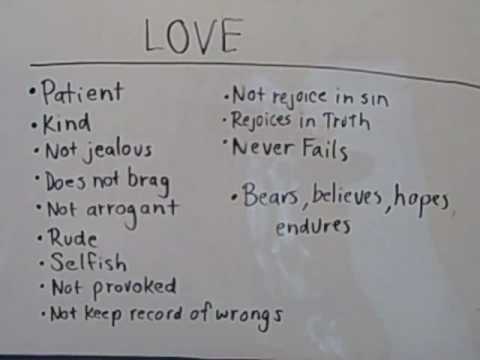 LOVE
• Patient
• Kind
• Not jealous
• Does not brag
• Not arrogant
• Rude
• Selfish
• Not provoked
• Not keep record of wrongs
• Not rejoice in sin
• Rejoices in Truth
• Never Fails
• Bears, believes, hopes,
endures